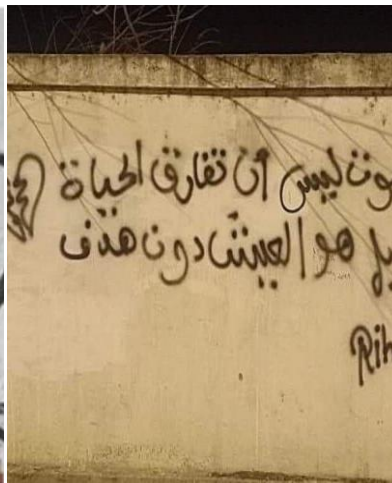 ليس أن تفارق الحياة
بل هو العيش دون هدف